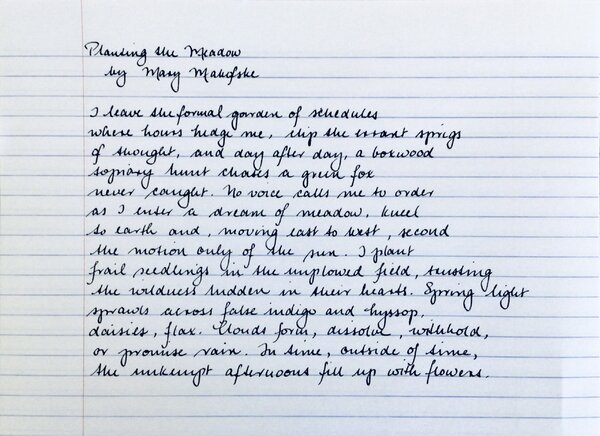 Planting the Meadow
by Mary Makofske
I leave the formal garden of schedules
where hours hedge me, clip the errant sprigs
of thought, and day after day, a boxwood
topiary hunt chases a green fox
never caught. No voice calls me to order
as I enter a dream of meadow, kneel
to earth and, moving east to west, second
the motion only of the sun. I plant
frail seedlings in the unplowed field, trusting
the wildness hidden in their hearts. Spring light
sprawls across false indigo and hyssop,
daisies, flax. Clouds form, dissolve, withhold,
or promise rain. In time, outside of time,
the unkempt afternoons fill up with flowers.